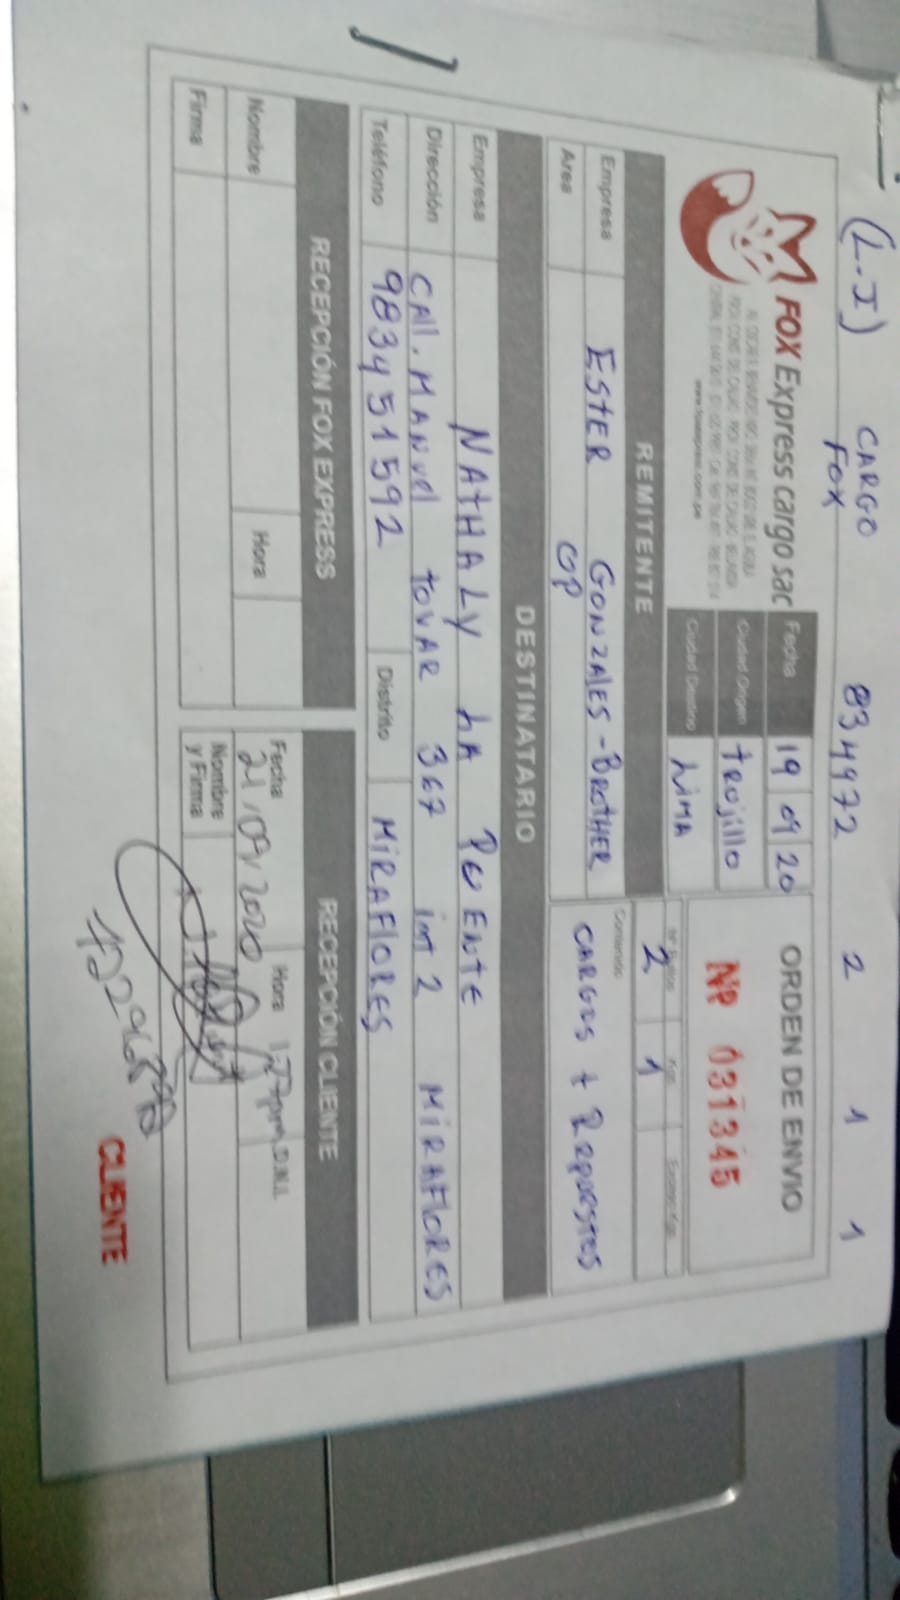 (L.I) CARGO FOX 834972 2 1 1
FOX Express cargo sac
Fecha 19 09 20
Ciudad Origen trujillo
Ciudad Destino LIMA
ORDEN DE ENVIO
Nº 031345
REMITENTE
2 1
Empresa ESTER GONZALES - BROTHER
Area OP
Contenido
CARGOS + REPUESTOS
DESTINATARIO
Empresa NATHALY LA PUENTE
Dirección CALL. MANUEL TOVAR 367 int 2 MIRAFLORES
Teléfono 983451592 Distrito MIRAFLORES
RECEPCIÓN FOX EXPRESS
Nombre Hora
Firma
RECEPCIÓN CLIENTE
Fecha 21/09/2020 Hora D.N.I.
Nombre y Firma
CLIENTE